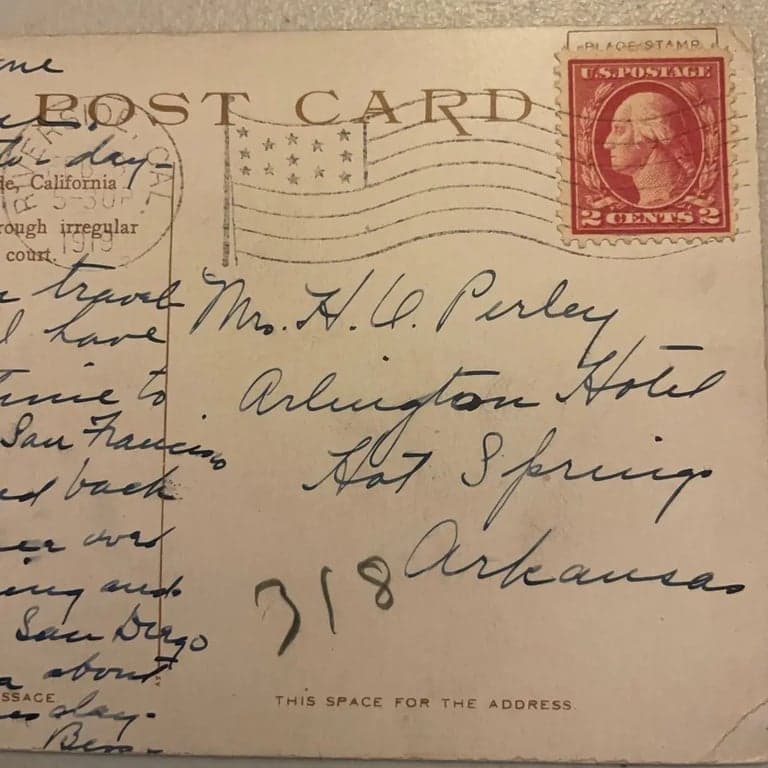 PLACE STAMP
U.S. POSTAGE
2 CENTS 2
POST CARD
RIVERSIDE, CAL.
5-30P
1919
day-
de, California
rough irregular
court.
travel
I have
time to
San Francisco
back
over
ing and
San Diego
about
day-
Bess-
SSAGE
Mrs. H. C. Perley
Arlington Hotel
Hot Springs
Arkansas
318
THIS SPACE FOR THE ADDRESS.